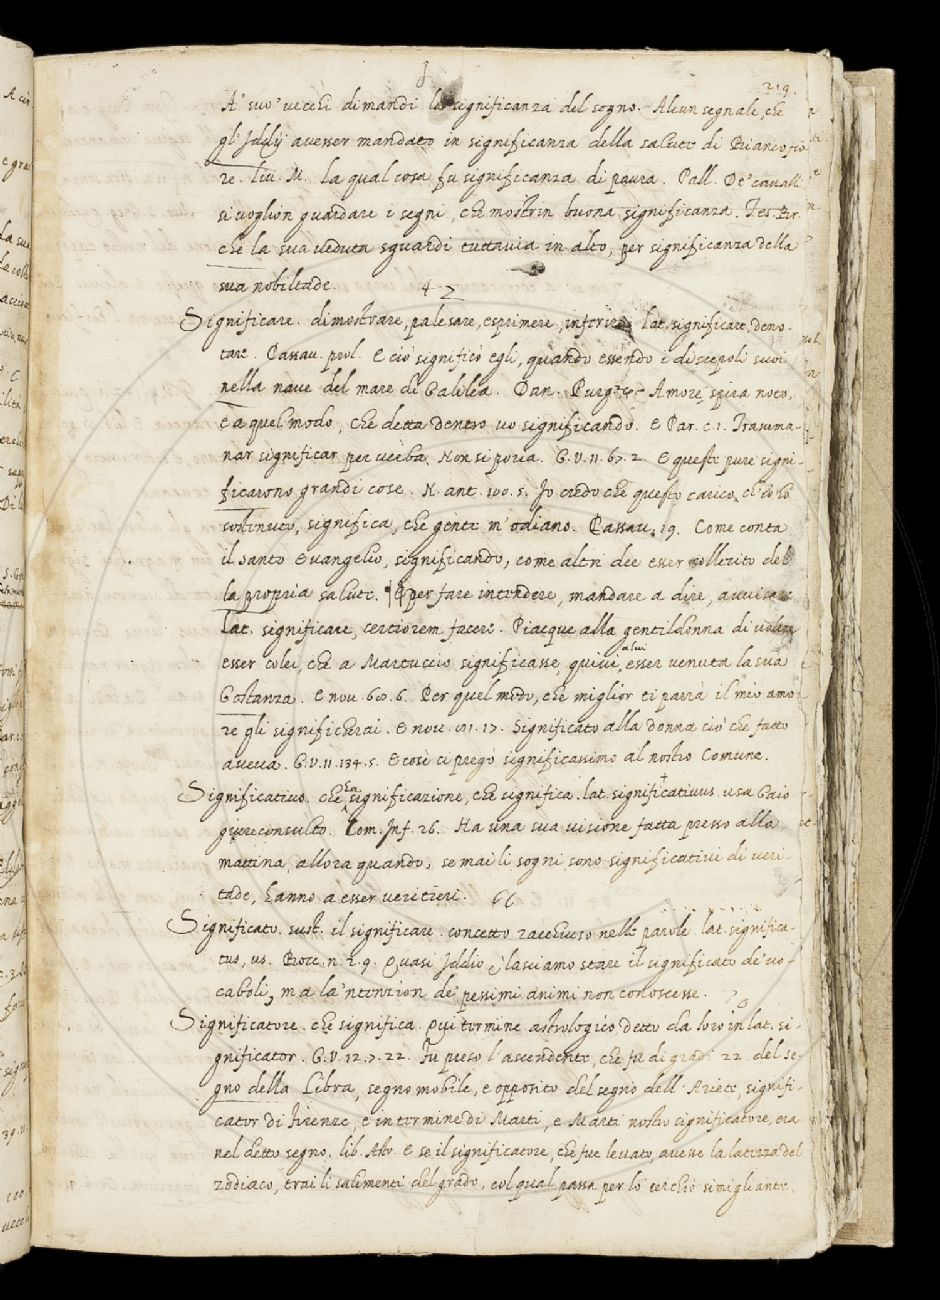 219.
A' suo' vecchi dimandi la significanza del sogno. Alcun segnale, che
gl'Iddij avesser mandato in significanza della salute di Biancofio
re. Liv. M. la qual cosa fu significanza di paura. Pall. De' cavalli
si voglion guardare i segni, che mostrin buona significanza. Tes. Br.
che la sua veduta sguardi tuttavia in alto, per significanza della
sua nobiltade.
Significare. dimostrare, palesare, esprimere, inferire lat. significare, deno-
tare. Passav. prol. E ciò significò egli, quando essendo i discepoli suoi
nella nave del mare di Galilea. Dan. Purg. Amore spira noto,
e a quel modo, che detta dentro vo significando. E Par. c. 1. Trasuma-
nar significar per verba. Non si poria. G. V. 11. 67. 2. E queste pure signi-
ficarono grandi cose. N. ant. 100. 5. Io credo che questo carico, ch'io ho
sostenuto, significa, che gente m'odiano. Passav. 19. Come conta
il santo Evangelio, significando, come altri dee esser sollecito del
la propria salute. E per fare intendere, mandare a dire, avvisare
lat. significare, certiorem facere. Piacque alla gentildonna di volere
esser colei, che a Martuccio significasse, quivi a lui esser venuta la sua
Gostanza. E nov. 60. 6. Per quel modo, che miglior ti parrà il mio amo
re gli significherai. E nov. 17. Significato alla donna ciò che fatto
aveva. G. V. 11. 134. 5. E così ci pregò significassimo al nostro Comune.
Significativo. che ha significazione, che significa. lat. significativus usa Gaio
gureconsulto. Com. Inf. 26. Ha una sua visione fatta presso alla
mattina, allora quando, se mai li sogni sono significativi di veri-
tade, hanno a esser veritieri. 66
Significato. sust. il significare. concetto racchiuso nelle parole lat. significa-
tus, us. Bocc. n. 2. 9. Quasi Iddio, lasciamo stare il significato de' vo-
caboli, ma la 'ntenzion de' pessimi animi non conoscesse.
Significatore. che significa. Qui termine astrologico detto da loro in lat. si-
gnificator. G. V. 12. 7. 22. Fu preso l'ascendente, che fu di gradi 22. del se-
gno della Libra, segno mobile, e opposito del segno dell'Ariete, signifi-
cator di Firenze, e in termine di Marti, e Marti nostro significatore, era
nel detto segno. lib. Astr. E se il significatore, che fue levato, avesse la latezza del
zodiaco, trai li salimenti del grado, col qual passa per lo cerchio simigliante